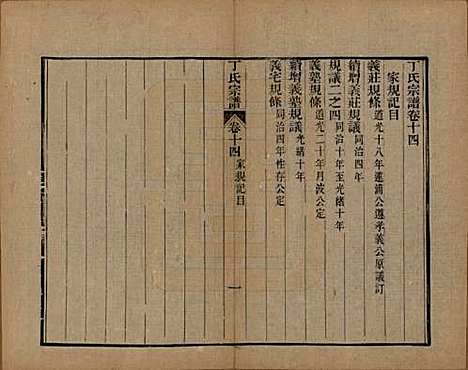 丁氏宗譜卷十四
家規記目
義莊規條道光十八年蓮浦公遵孝義公原議訂
續增義莊規議同治四年
規議二之四同治十年至光緒十年
義塾規條道光二十年月波公定
續增義塾規議光緒十年
義宅規條同治四年性存公定
丁氏宗譜 卷十四家規記目 一